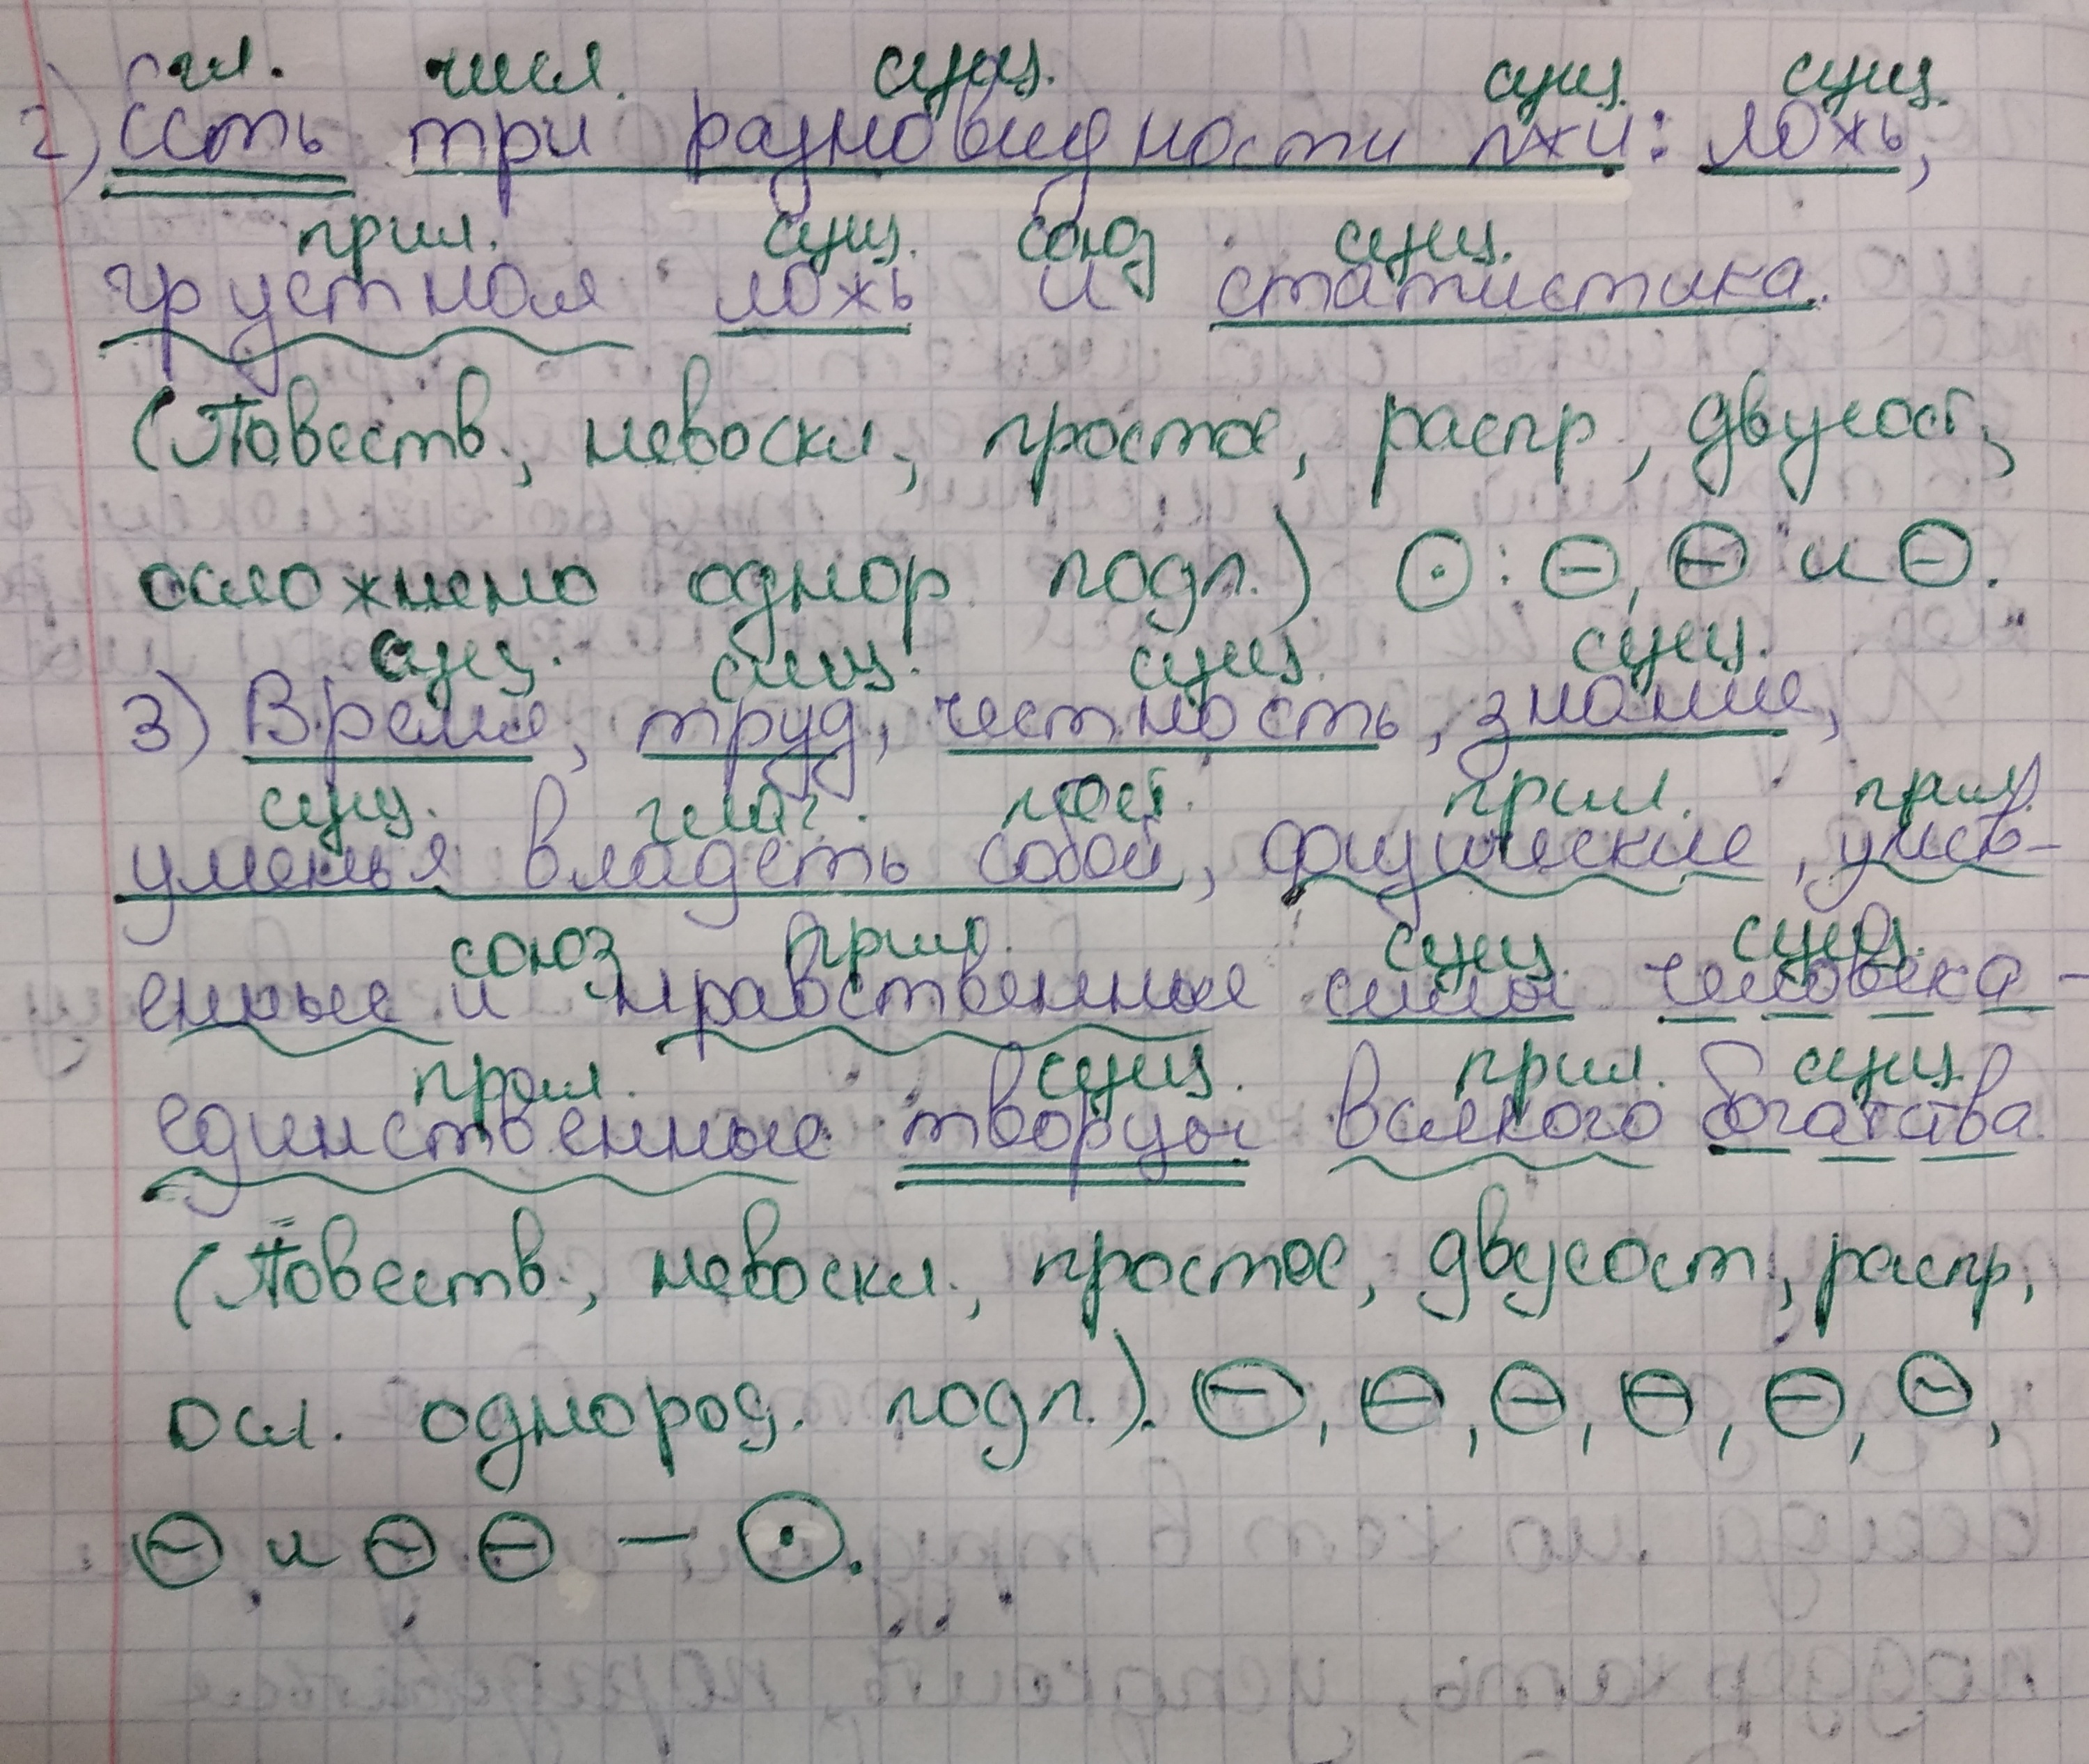 гл. числ. сущ. сущ. сущ.
2) Есть три разновидности лжи: ложь,
прил. сущ. союз сущ.
грустная ложь и статистика.
(Повеств., невоскл., простое, распр, двусост,
осложнено однор подл.) ⊙: ⊖, ⊖ и ⊖.
сущ. сущ. сущ. сущ.
3) Время, труд, честность, знание,
сущ. глаг. мест. прил. прил.
уменья владеть собой, физические, умств-
союз прил. сущ. сущ.
енные и нравственные силы человека -
прил. сущ. прил. сущ.
единственные творцы всякого богатства
(Повеств., невоскл., простое, двусост., распр,
осл. однород. подл.). ⊖, ⊖, ⊖, ⊖, ⊖, ⊖,
⊖ и ⊖ ⊖ — ⊙.